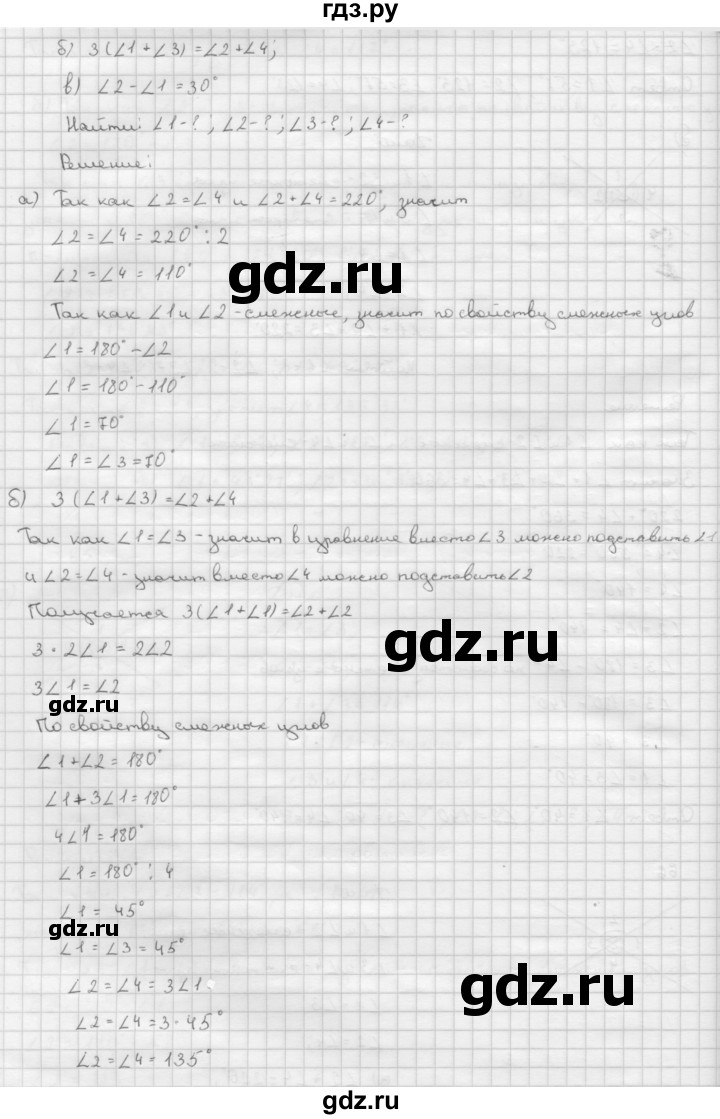 гдз.ру
б) 3(∠1+∠3)=∠2+∠4;
в) ∠2-∠1=30°
Найти: ∠1-?; ∠2-?; ∠3-?; ∠4-?
Решение:
а) Так как ∠2=∠4 и ∠2+∠4=220°, значит
∠2=∠4=220°:2
∠2=∠4=110°
gdz.ru
Так как ∠1 и ∠2 - смежные, значит по свойству смежных углов
∠1=180°-∠2
∠1=180°-110°
∠1=70°
∠1=∠3=70°
б) 3(∠1+∠3)=∠2+∠4
Так как ∠1=∠3 - значит в уравнение вместо ∠3 можно подставить ∠1
и ∠2=∠4 - значит вместо ∠4 можно подставить ∠2
Получается 3(∠1+∠1)=∠2+∠2
3·2∠1=2∠2
gdz.ru
3∠1=∠2
gdz.ru
По свойству смежных углов
∠1+∠2=180°
∠1+3∠1=180°
4∠1=180°
∠1=180°:4
∠1=45°
gdz.ru
∠1=∠3=45°
∠2=∠4=3∠1
gdz.ru
∠2=∠4=3·45°
∠2=∠4=135°
gdz.ru